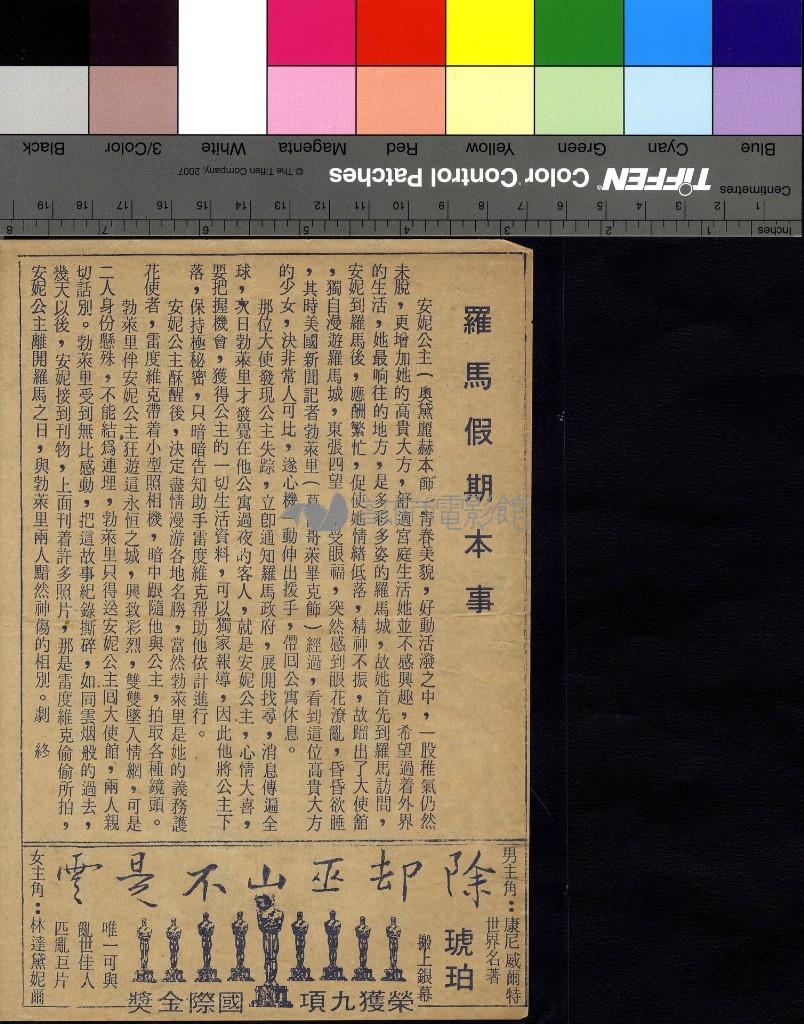 Blue
Cyan
Green
Yellow
Red
Magenta
White
3/Color
Black
TIFFEN® Color Control Patches
© The Tiffen Company, 2007
Centimetres
1 2 3 4 5 6 7 8 9 10 11 12 13 14 15 16 17 18 19
Inches
1 2 3 4 5 6 7 8
羅馬假期本事
安妮公主（奧黛麗赫本飾）青春美貌，好動活潑之中，一股稚氣仍然
未脫，更增加她的高貴大方，舒適宮庭生活她並不感興趣，希望過着外界
的生活，她最响往的地方，是多彩多姿的羅馬城，故她首先到羅馬訪問，
安妮到羅馬後，應酬繁忙，促使她情緒低落，精神不振，故蹓出了大使舘
，獨自漫遊羅馬城，東張四望，受眼福，突然感到眼花潦亂，昏昏欲睡
，其時美國新聞記者勃萊里（哥萊畢克飾）經過，看到這位高貴大方
的少女，決非常人可比，遂心機一動伸出援手，帶囘公寓休息。
那位大使發現公主失踪，立卽通知羅馬政府，展開找尋，消息傳遍全
球，次日勃萊里才發覺在他公寓過夜的客人，就是安妮公主，心情大喜，
要把握機會，獲得公主的一切生活資料，可以獨家報導，因此他將公主下
落，保持極秘密，只暗暗告知助手雷度維克帮助他依計進行。
安妮公主酥醒後，決定盡情漫游各地名勝，當然勃萊里是她的義務護
花使者，雷度維克帶着小型照相機，暗中跟隨他與公主，拍取各種鏡頭。
勃萊里伴安妮公主狂遊這永恒之城，興致彩烈，雙雙墜入情網，可是
二人身份懸殊，不能結爲連理，勃萊里只得送安妮公主囘大使館，兩人親
切話別。勃萊里受到無比感動，把這故事紀錄撕碎，如同雲烟般的過去，
幾天以後，安妮接到刊物，上面刊着許多照片，那是雷度維克偷偷所拍，
安妮公主離開羅馬之日，與勃萊里兩人黯然神傷的相別。劇 終
除却巫山不是雲
男主角：康尼威爾特
世界名著
琥珀
搬上銀幕
榮獲九項國際金獎
唯一可與
亂世佳人
匹亂巨片
女主角：林達黛妮爾
電影館